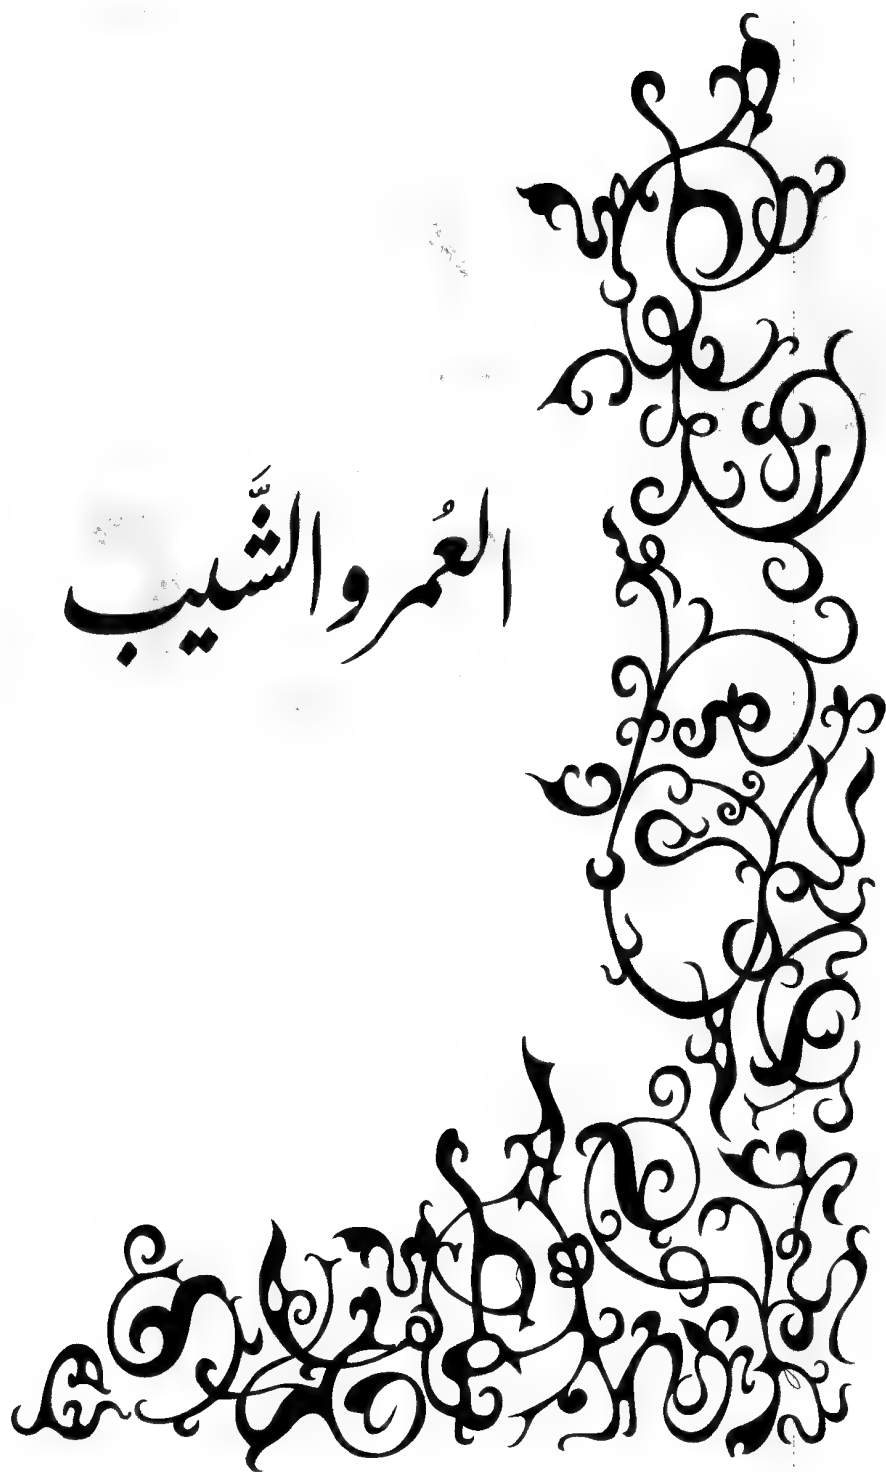 العُمر والشَّيب